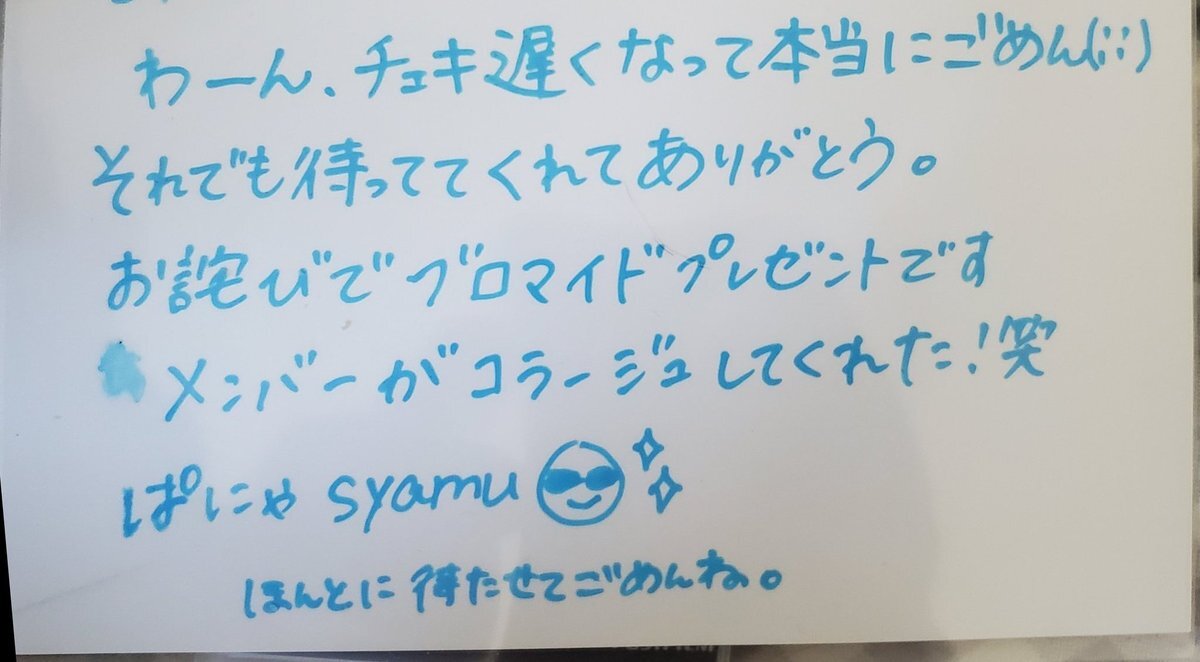 わーん、チェキ遅くなって本当にごめん(;;)
それでも待っててくれてありがとう。
お詫びでブロマイドプレゼントです
メンバーがコラージュしてくれた!笑
ぱにゃ syamu
ほんとに待たせてごめんね。